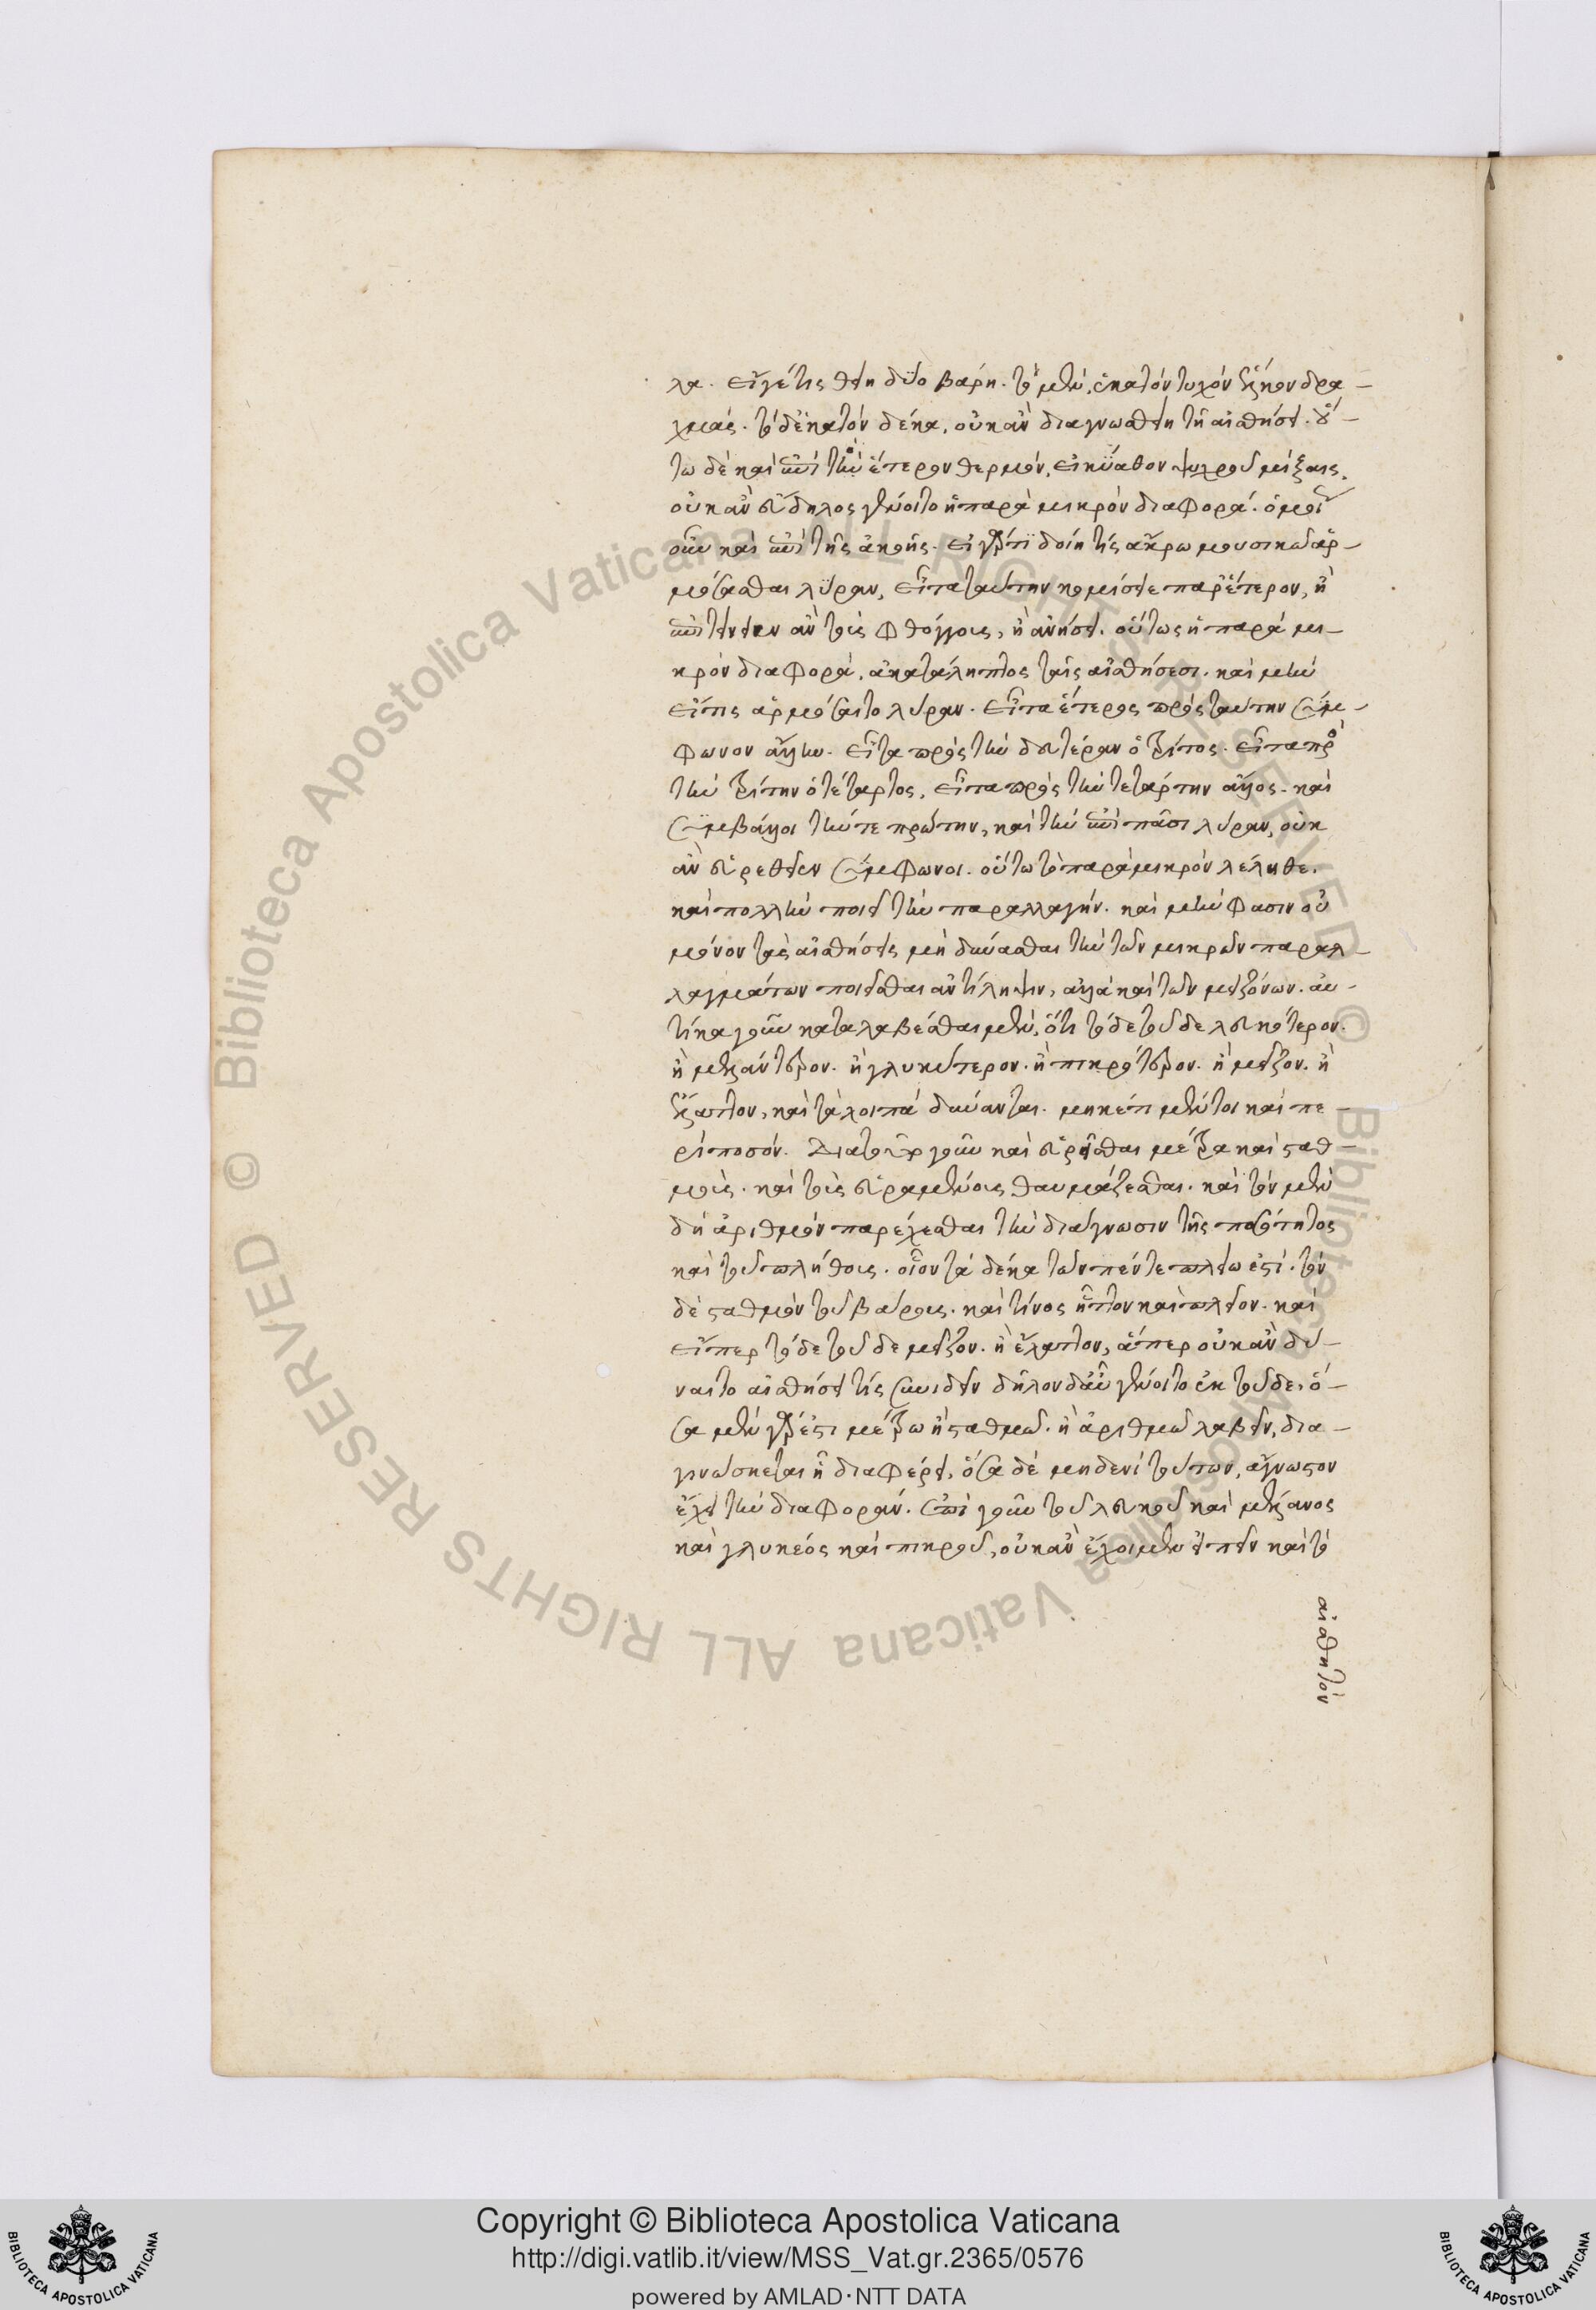 λα. εἴγέ τις θείη δύο βάρη. τὸ μὲν, ἑκατὸν τυχὸν ἕλκον δρα-
χμάς. τὸ δἑκατὸν δέκα, οὐκ ἂν διαγνωσθείη τῇ αἰσθήσει. οὕ-
τω δὲ καὶ ἐπὶ τὸν ἕτερον θερμόν, εἰ κύαθον ψυχροῦ μίξαις,
οὐκ ἂν εὔδηλος γένοιτο ἡ παρὰ μικρὸν διαφορά. ὁμοί
οὖν καὶ ἐπὶ τῆς ἀκοῆς. εἰ γὰρ ἐπιδοίη τίς ἄκρω μουσικῶ ἁρ-
μόσασθαι λύραν, εἶτα ταύτην κομίσειε παρἕτερον, ἢ
ἐπιτείνειεν ἂν τοῖς φθόγγοις, ἢ ἀνήσει. οὕτως ἡ παρὰ μι-
κρὸν διαφορά, ἀκατάληπτος ταῖς αἰσθήσεσι. καὶ μὴν
εἴτις ἁρμόσαιτο λύραν. εἶτα ἕτερος πρὸς ταύτην σύμ-
φωνον ἄλλην. εἶτα πρὸς τὴν δευτέραν ὁ τρίτος. εἶτα πρὸ
τὴν τρίτην ὁ τέταρτος, εἶτα πρὸς τὴν τετάρτην ἄλλος. καὶ
συμβάλλοι τήν τε πρώτην, καὶ τὴν ἐπὶ πᾶσι λύραν, οὐκ
ἂν εὑρεθεῖεν σύμφωνοι. οὕτω τὸ παρὰ μικρὸν λέληθε.
καὶ πολλὴν ποιεῖ τὴν παραλλαγήν. καὶ μήν φασιν οὐ
μόνον τὰς αἰσθήσεις μὴ δύνασθαι τὴν τῶν μικρῶν παραλ-
λαγμάτων ποιεῖσθαι ἀντίληψιν, ἀλλὰ καὶ τῶν μειζόνων. αὐ-
τίκα γοῦν καταλαβέσθαι μὲν, ὅτι τόδε τοῦδε λευκότερον.
ἢ μελάντερον. ἢ γλυκύτερον. ἢ πικρότερον. ἢ μεῖζον. ἢ
ἔλαττον, καὶ τὰ λοιπά δύνανται. μηκέτι μέντοι καὶ πε-
ρὶ ποσόν. Διατοῦτο γοῦν καὶ εὑρῆσθαι μέτρα καὶ σταθ-
μοὺς. καὶ τοὺς εὑραμένους θαυμάζεσθαι. καὶ τὸν μὲν
δὴ ἀριθμὸν παρέχεσθαι τὴν διάγνωσιν τῆς ποσότητος
καὶ τοῦ πλήθους. οἷον τὰ δέκα τῶν πέντε πλείω ἐστί. τὸν
δὲ σταθμὸν τοῦ βάρους. καὶ τίνος ἧττον καὶ πλεῖον. καὶ
εἴπερ τόδε τοῦδε μεῖζον. ἢ ἔλαττον, ἅπερ οὐκ ἂν δύ-
ναιτο αἰσθήσει τίς συνιδεῖν δῆλον δἂν γένοιτο ἐκ τοῦδε, ὅ-
σα μὲν γὰρ ἔστι μέτρω ἢ σταθμῶ. ἢ ἀριθμῶ λαβεῖν, δια-
γινώσκεται ἧ διαφέρει, ὅσα δὲ μηδενὶ τούτων, ἄγνωστον
ἔχει τὴν διαφοράν. ἐπὶ γοῦν τοῦ λευκοῦ καὶ μέλανος
καὶ γλυκέος καὶ πικροῦ, οὐκ ἂν ἔχοιμεν εἰπεῖν καὶ τὸ
αἰσθητὸν
Copyright © Biblioteca Apostolica Vaticana
http://digi.vatlib.it/view/MSS_Vat.gr.2365/0576
powered by AMLAD·NTT DATA